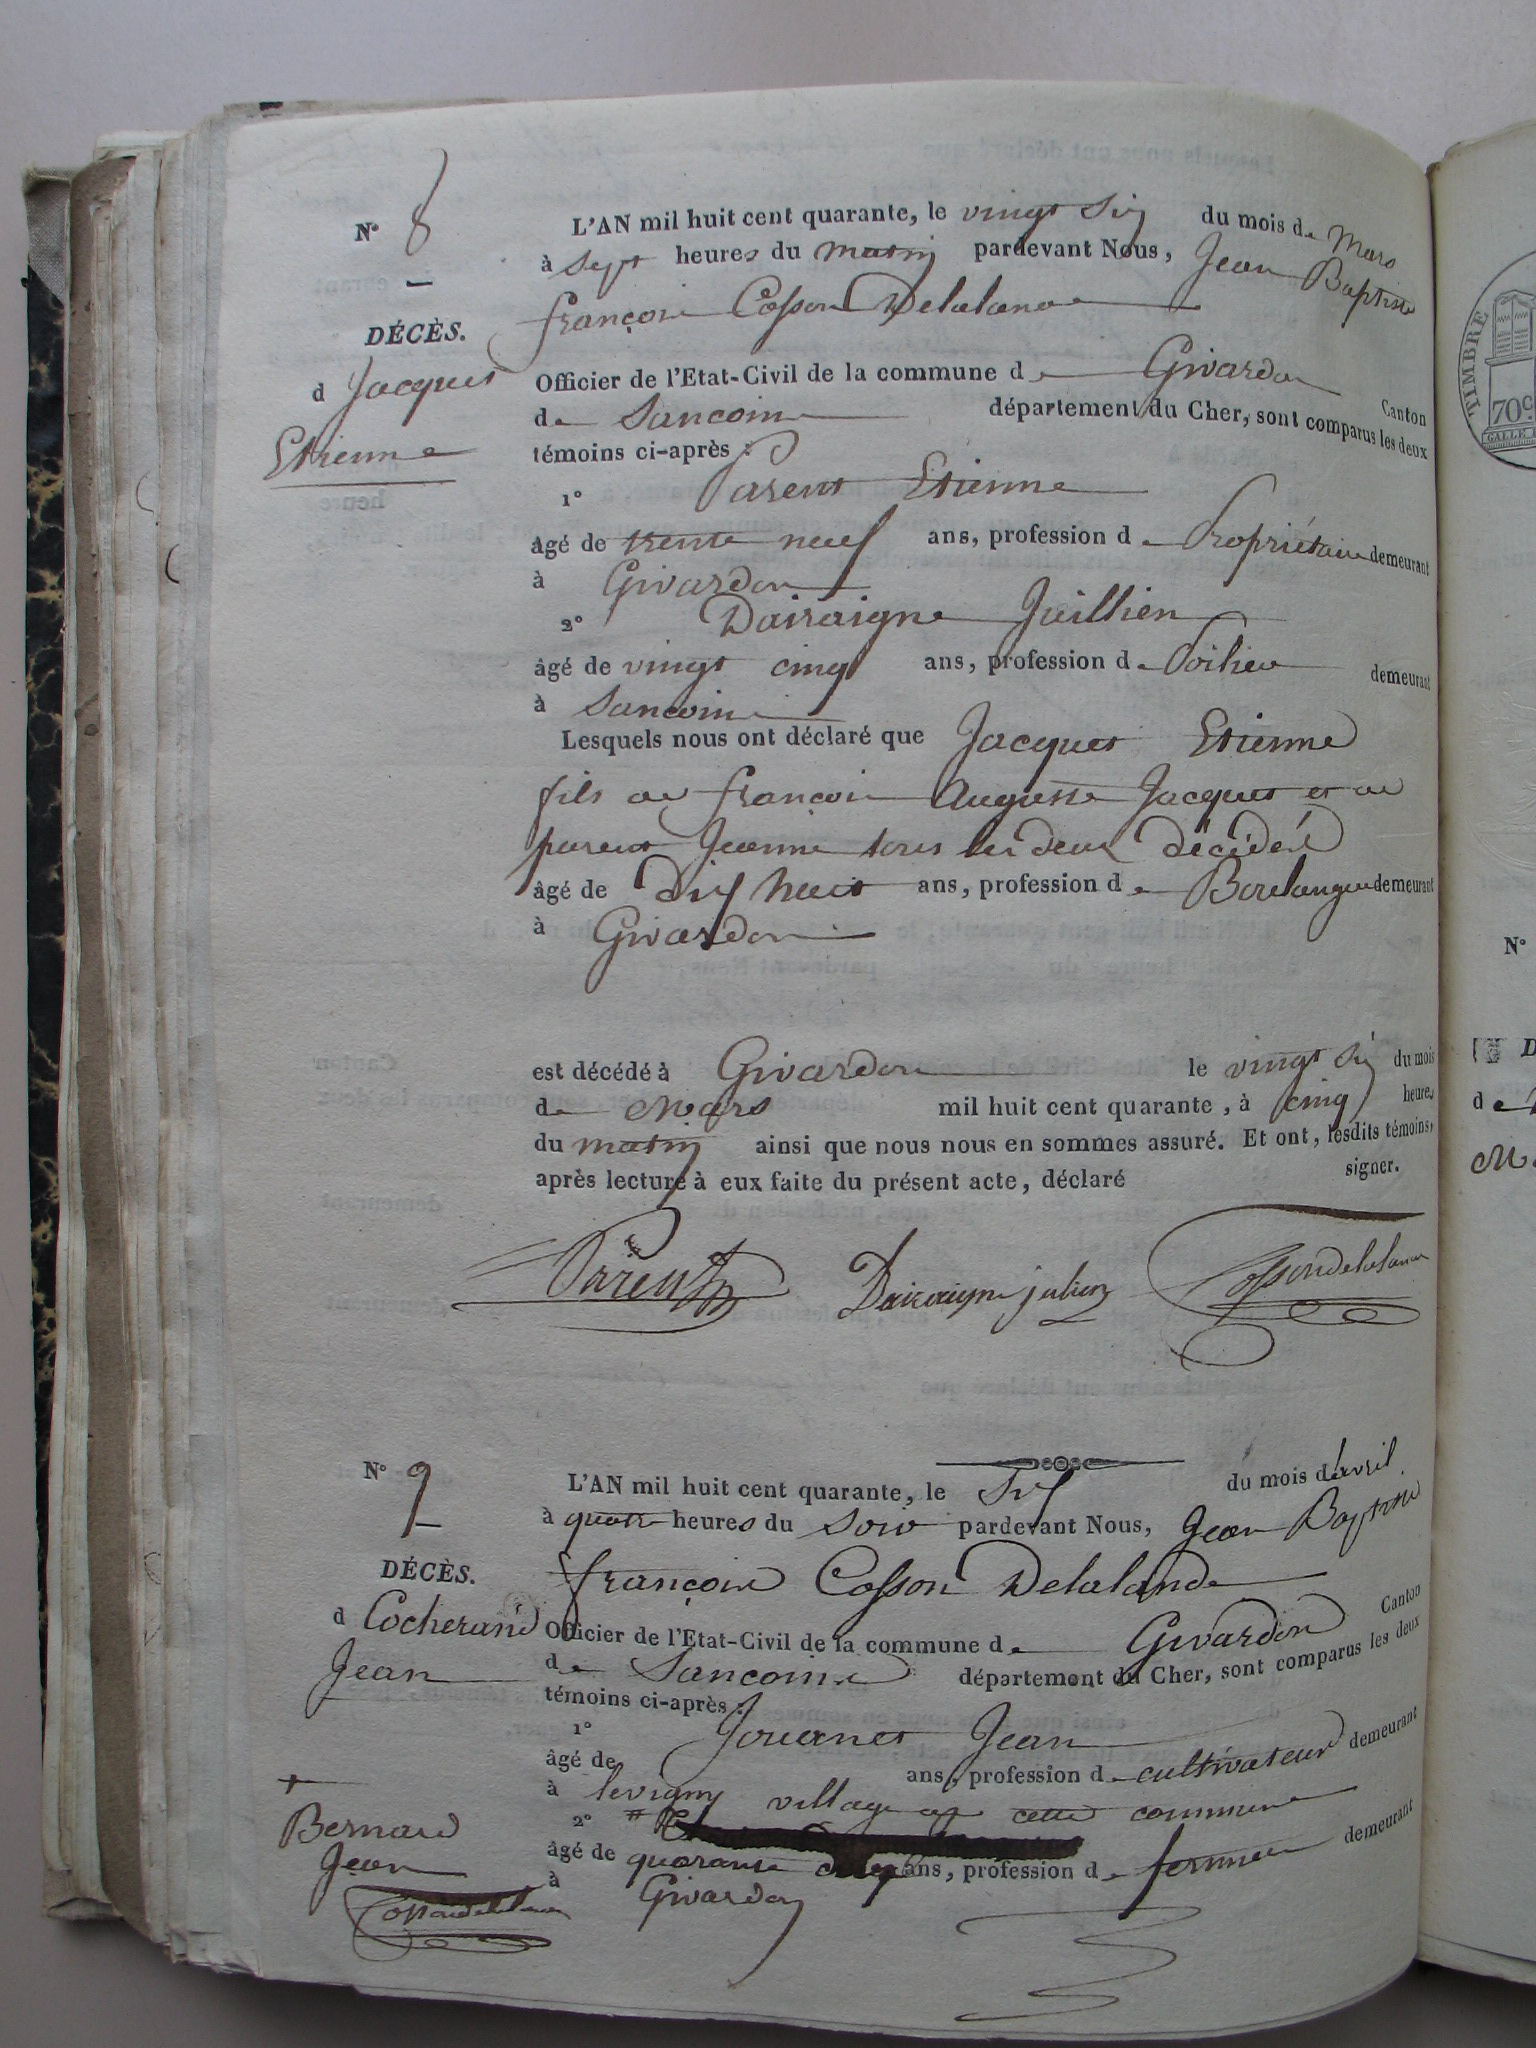 N° 8
DÉCÈS.
d Jacques
Etienne
L'AN mil huit cent quarante, le vingt Six du mois de Mars
à Sept heures du matin pardevant Nous, Jean Baptiste
françois Cosson Delalande
Officier de l'Etat-Civil de la commune de Givardon Canton
de Sancoins département du Cher, sont comparus les deux
témoins ci-après :
1° Parent Etienne
âgé de trente neuf ans, profession de Propriétaire demeurant
à Givardon
2° Dairaigne Juillien
âgé de vingt cinq ans, profession de demeurant
à Sancoins
Lesquels nous ont déclaré que Jacques Etienne
fils de françois Auguste Jacques et de
parent Jeanne tous les deux décédés
âgé de dix huit ans, profession de Boulanger demeurant
à Givardon
est décédé à Givardon le vingt Six du mois
de Mars mil huit cent quarante, à cinq heures
du matin ainsi que nous nous en sommes assuré. Et ont, lesdits témoins,
après lecture à eux faite du présent acte, déclaré signer.
Parent Dairaigne julien Cossondelalande
N° 9
DÉCÈS.
d Cocherand
Jean
L'AN mil huit cent quarante, le Six du mois d'avril
à quatre heures du Soir pardevant Nous, Jean Baptiste
françois Cosson Delalande
Officier de l'Etat-Civil de la commune de Givardon Canton
de Sancoins département du Cher, sont comparus les deux
témoins ci-après :
1° Jouanet Jean
âgé de ans, profession de cultivateur demeurant
à levigny village de cette commune
2°
âgé de quarante cinq ans, profession de fermier demeurant
à Givardon
+
Bernard
Jean
Cossondelalande
TIMBRE
70c.
N°
D
de